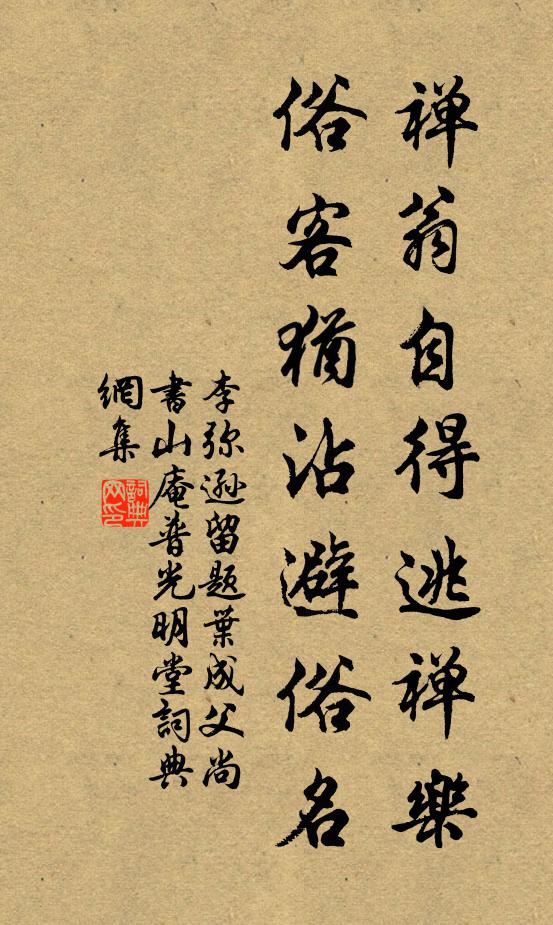 禅翁自得逃禅樂
俗客猶沾避俗名
李弥遜留題葉成父尚
書山庵普光明堂詞典
網集
詞典網印